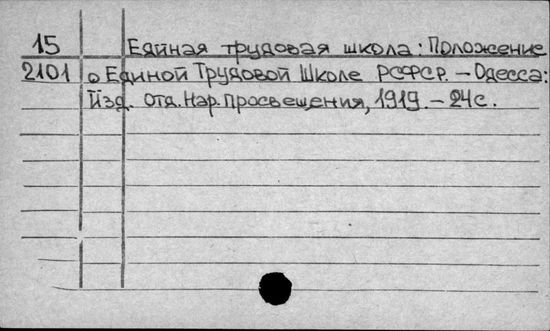 15 Единая трудовая школа: Положение
2101 о Единой Трудовой Школе РСФСР. – Одесса:
Изд. Отд. Нар. Просвещения, 1919. – 24 с.